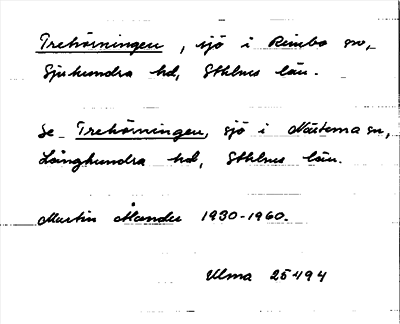 Trehörningen, sjö i Rimbo sn,
Sjuhundra hd, Sthlms län.
Se Trehörningen, sjö i Närtuna sn,
Långhundra hd, Sthlms län.
Martin Ålander 1930-1960.
Ulma 25494